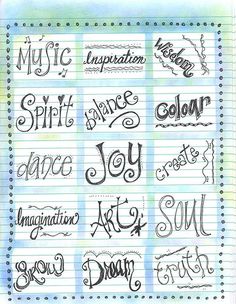 Music Inspiration Wisdom
Spirit Balance Colour
dance Joy create
Imagination Art Soul
Grow Dream Truth